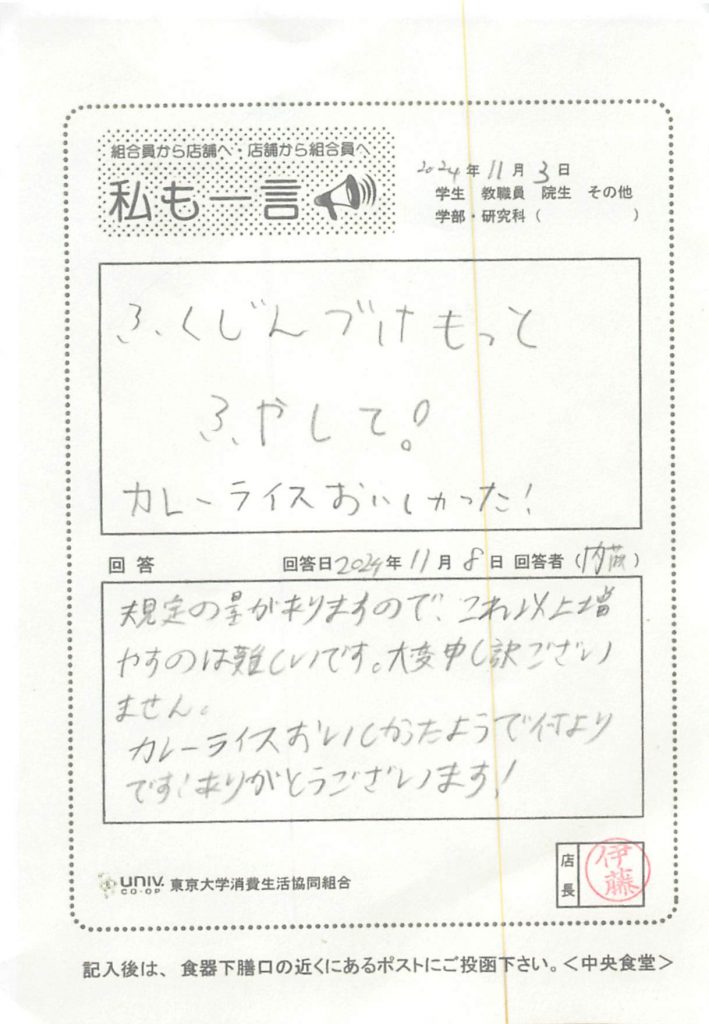 組合員から店舗へ・店舗から組合員へ
私も一言
2024年11月3日
学生 教職員 院生 その他
学部・研究科( )
ふくじんづけもっと
ふやして!
カレーライスおいしかった!
回答 回答日2024年11月8日 回答者(内藤)
規定の量がありますので、これ以上増
やすのは難しいです。大変申し訳ござい
ません。
カレーライスおいしかったようで何より
です!ありがとうございます!
UNIV. CO-OP 東京大学消費生活協同組合
店長
伊藤
記入後は、食器下膳口の近くにあるポストにご投函下さい。<中央食堂>